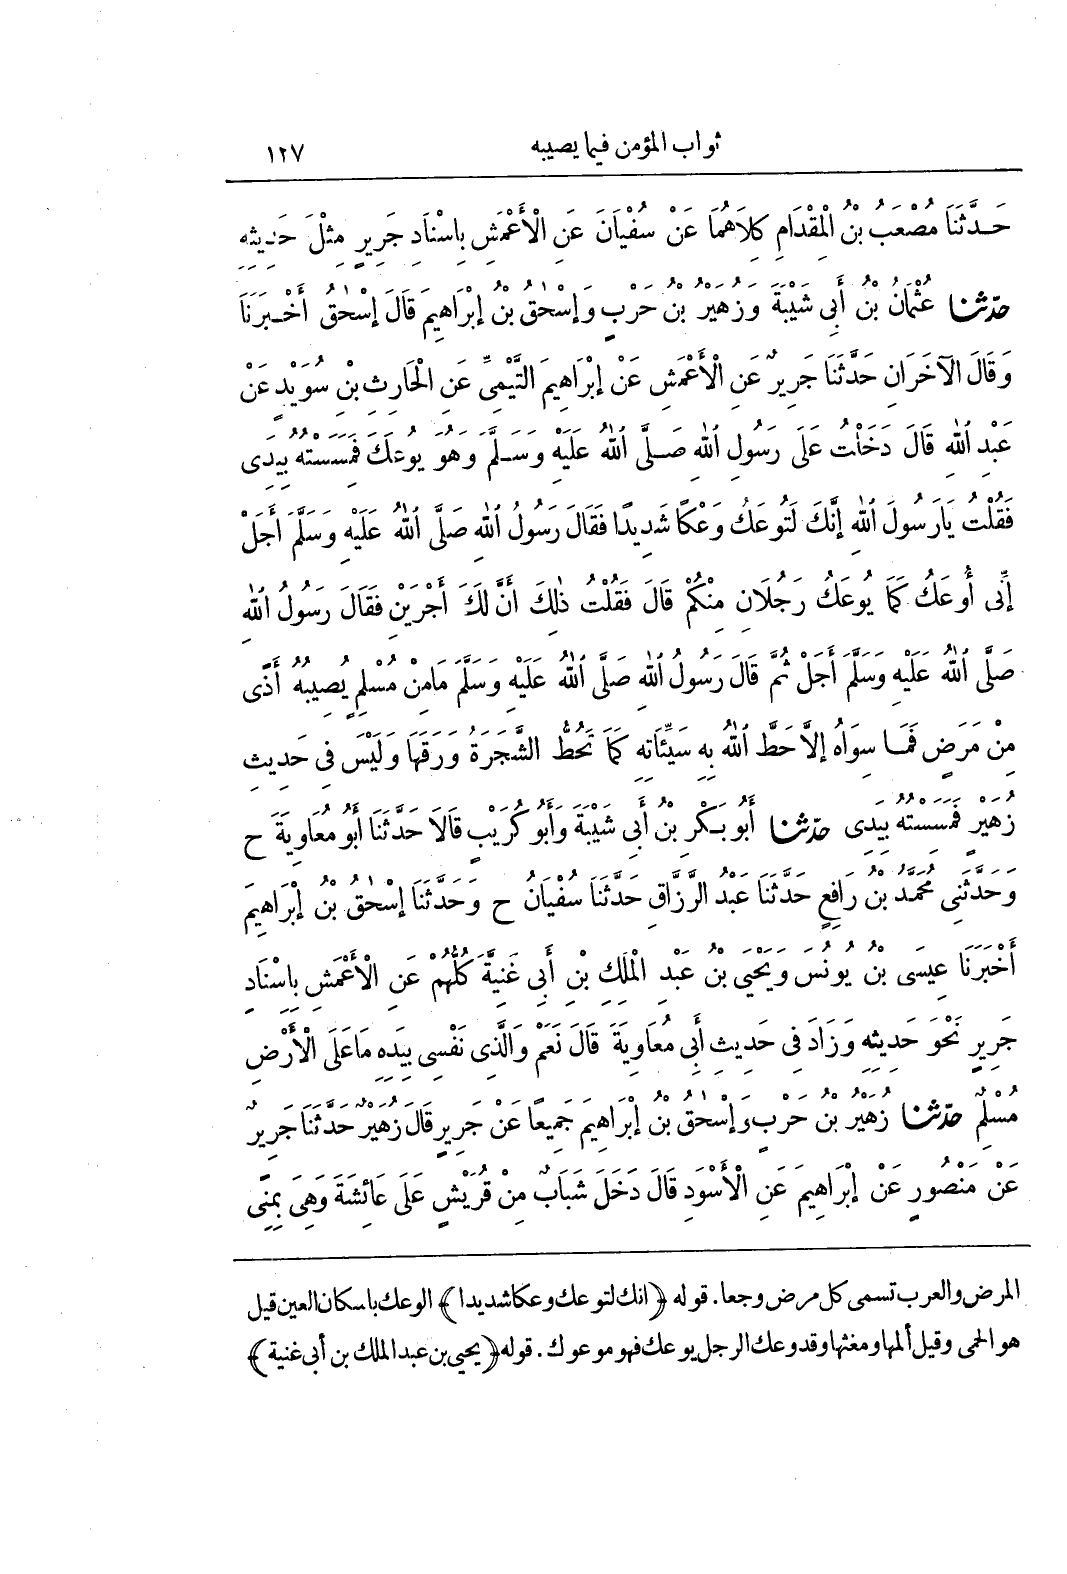 ثواب المؤمن فيما يصيبه ١٢٧
حَدَّثَنَا مُصْعَبُ بْنُ الْمِقْدَامِ كِلَاهُمَا عَنْ سُفْيَانَ عَنِ الْأَعْمَشِ بِاسْنَادِ جَرِيرٍ مِثْلَ حَدِيثِهِ
حدّثنا عُثْمَانُ بْنُ أَبِى شَيْبَةَ وَزُهَيْرُ بْنُ حَرْبٍ وَإِسْحٰقُ بْنُ إِبْرَاهِيمَ قَالَ إِسْحٰقُ أَخْبَرَنَا
وَقَالَ الْآخَرَانِ حَدَّثَنَا جَرِيرٌ عَنِ الْأَعْمَشِ عَنْ إِبْرَاهِيمَ التَّيْمِىِّ عَنِ الْحَارِثِ بْنِ سُوَيْدٍ عَنْ
عَبْدِ اللهِ قَالَ دَخَلْتُ عَلَى رَسُولِ اللهِ صَلَّى اللهُ عَلَيْهِ وَسَلَّمَ وَهُوَ يُوعَكُ فَمَسَسْتُهُ بِيَدِى
فَقُلْتُ يَارَسُولَ اللهِ إِنَّكَ لَتُوعَكُ وَعْكًا شَدِيدًا فَقَالَ رَسُولُ اللهِ صَلَّى اللهُ عَلَيْهِ وَسَلَّمَ أَجَلْ
إِنِّى أُوعَكُ كَمَا يُوعَكُ رَجُلَانِ مِنْكُمْ قَالَ فَقُلْتُ ذٰلِكَ أَنَّ لَكَ أَجْرَيْنِ فَقَالَ رَسُولُ اللهِ
صَلَّى اللهُ عَلَيْهِ وَسَلَّمَ أَجَلْ ثُمَّ قَالَ رَسُولُ اللهِ صَلَّى اللهُ عَلَيْهِ وَسَلَّمَ مَامِنْ مُسْلِمٍ يُصِيبُهُ أَذًى
مِنْ مَرَضٍ فَمَا سِوَاهُ إِلاَّ حَطَّ اللهُ بِهِ سَيِّئَاتِهِ كَمَا تَحُطُّ الشَّجَرَةُ وَرَقَهَا وَلَيْسَ فِى حَدِيثِ
زُهَيْرٍ فَمَسَسْتُهُ بِيَدِى حدّثنا أَبُو بَكْرِ بْنُ أَبِى شَيْبَةَ وَأَبُو كُرَيْبٍ قَالَا حَدَّثَنَا أَبُو مُعَاوِيَةَ ح
وَحَدَّثَنِى مُحَمَّدُ بْنُ رَافِعٍ حَدَّثَنَا عَبْدُ الرَّزَّاقِ حَدَّثَنَا سُفْيَانُ ح وَحَدَّثَنَا إِسْحٰقُ بْنُ إِبْرَاهِيمَ
أَخْبَرَنَا عِيسَى بْنُ يُونُسَ وَيَحْيَى بْنُ عَبْدِ الْمَلِكِ بْنِ أَبِى غَنِيَّةَ كُلُّهُمْ عَنِ الْأَعْمَشِ بِاسْنَادِ
جَرِيرٍ نَحْوَ حَدِيثِهِ وَزَادَ فِى حَدِيثِ أَبِى مُعَاوِيَةَ قَالَ نَعَمْ وَالَّذِى نَفْسِى بِيَدِهِ مَاعَلَى الْأَرْضِ
مُسْلِمٌ حدّثنا زُهَيْرُ بْنُ حَرْبٍ وَإِسْحٰقُ بْنُ إِبْرَاهِيمَ جَمِيعًا عَنْ جَرِيرٍ قَالَ زُهَيْرٌ حَدَّثَنَا جَرِيرٌ
عَنْ مَنْصُورٍ عَنْ إِبْرَاهِيمَ عَنِ الْأَسْوَدِ قَالَ دَخَلَ شَبَابٌ مِنْ قُرَيْشٍ عَلَى عَائِشَةَ وَهِىَ بِمِنًى
المرض والعرب تسمى كل مرض وجعا. قوله ﴿انك لتوعك وعكا شديدا﴾ الوعك باسكان العين قيل
هو الحمى وقيل ألمها ومغثها وقد وعك الرجل يوعك فهو موعوك. قوله ﴿يحيى بن عبد الملك بن أبى غنية﴾